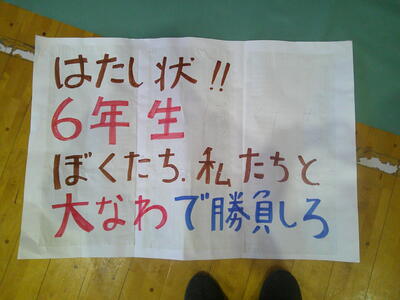 はたし状!!
6年生
ぼくたち.私たちと
大なわで勝負しろ